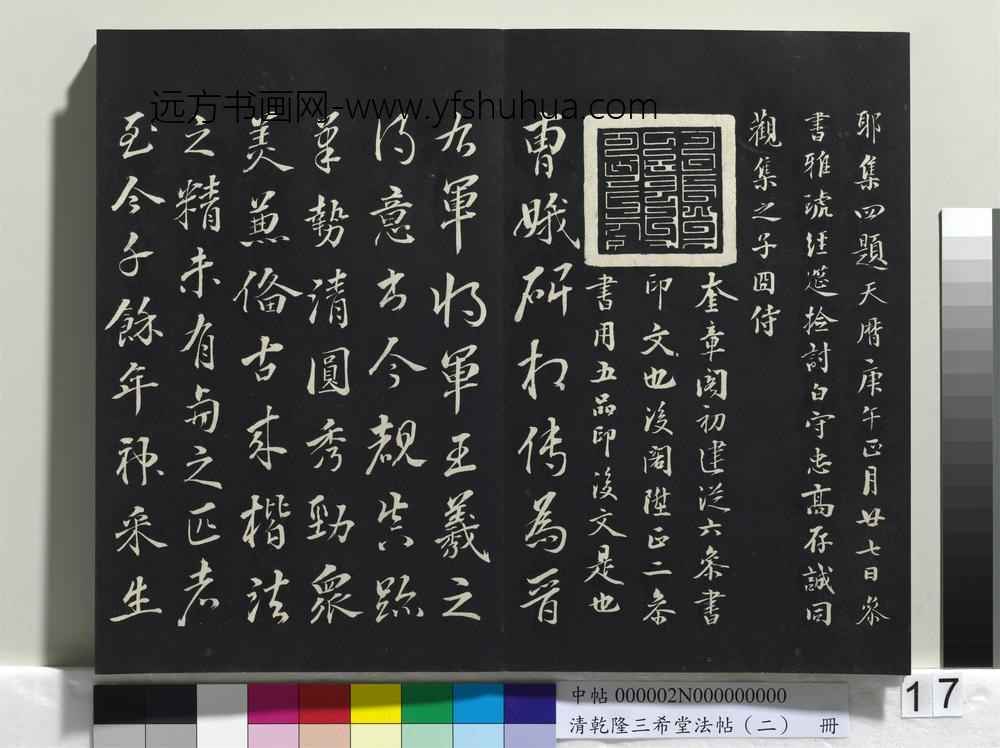 耶集四題天曆庚午正月廿七日叅
書雅琥經筵撿討白守忠高存誠同
觀集之子囧侍
奎章閣初建從六叅書
印文也後閣陞正二叅
書用五品印後文是也
曹娥碑相传為晋
右軍将軍王羲之
得意書今覩真跡
筆勢清圓秀勁衆
美兼俻古来楷法
之精未有與之匹者
至今千餘年神采生
远方书画网-www.yfshuhua.com
中帖 000002N000000000
清乾隆三希堂法帖（二） 冊
17